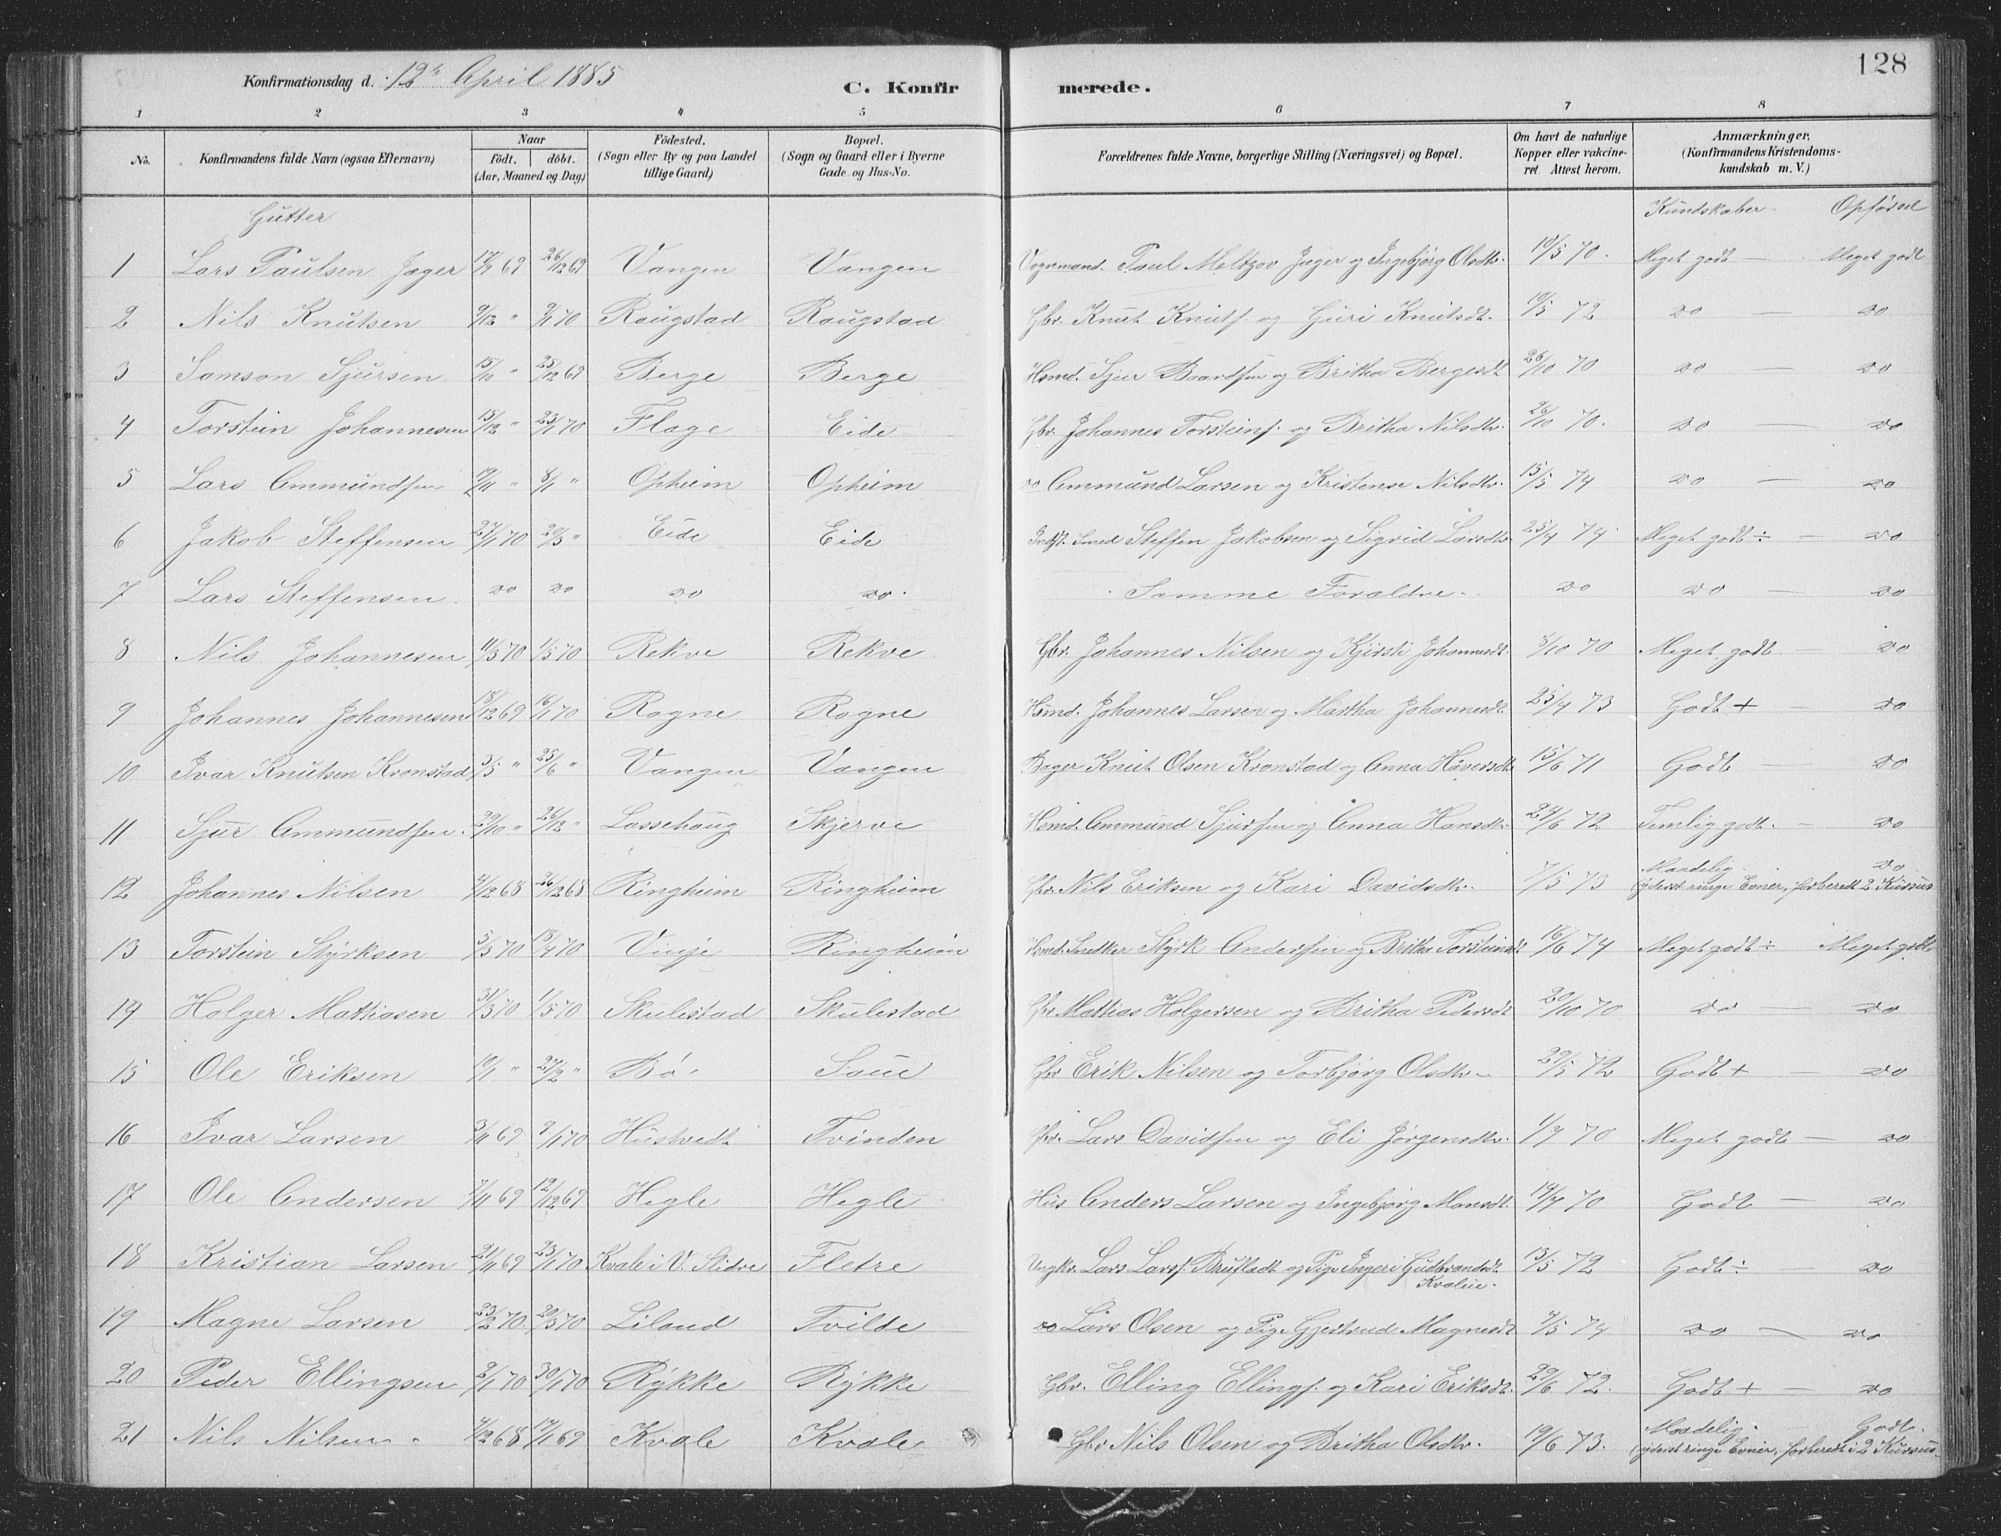 128
Konfirmationsdag d. 12te April 1885 C. Konfirmerede.
1 2 3 4 5 6 7 8
No. Konfirmandens fulde Navn (ogsaa Efternavn) Naar Födt. döbt. (Aar, Maaned og Dag) Födested. (Sogn eller By og paa Landet tillige Gaard) Bopæl. (Sogn og Gaard eller i Byerne Gade og Hus-No. Forældrenes fulde Navne, borgerlige Stilling (Næringsvei) og Bopæl. Om havt de naturlige Kopper eller vakcineret. Attest herom. Anmærkninger. (Konfirmandens Kristendomskundskab m. V.)
Gutter Kundskaber Opførsel
1 Lars Paulsen Jager 17/9 69 26/12 69 Vangen Vangen Vognmand Paul Meltzov Jæger og Ingebjørg Olsdtr. 10/5 70. Meget godt — Meget godt
2 Nils Knutsen 9/12 " 9/1 70 Rougstad Rougstad Gbr. Knut Knuts. og Guri Knutsdt. 10/5 72 do — do
3 Samson Sjursen 15/10 " 25/12 69 Berge Berge Hsmd. Sjur Baardsen og Britha Bergesdt 26/10 70 do — do
4 Torstein Johannesen 15/12 " 23/1 70 Flage Eide Gbr. Johannes Torsteins. og Britha Nilsdtr. 26/10 70. do — do
5 Lars Ammundsen " 8/1 " Opheim Opheim do Ammund Larsen og Kristense Nilsdtr. 15/5 74 do — do
6 Jakob Steffensen 27/1 70 20/3 " Eide Eide Indst. Smed Steffen Jakobsen og Sigrid Larsdtr. 25/4 74 Meget godt ÷ — do
7 Lars Steffensen do do do do. Samme Forældre. do do — do
8 Nils Johannesen 11/3 70 1/5 70 Rekve Rekve Gbr. Johannes Nilsen og Kjirsti Johannesdt. 8/10 70 Meget godt — do
9 Johannes Johannesen 18/12 69 16/1 70 Rogne Rogne Hsmd. Johannes Larsen og Martha Johannesdt. 25/4 73 Godt + do
10 Ivar Knutsen Kronstad 3/5 " 25/6 " Vangen Vangen Bager Knut Olsen Kronstad og Anna Haversdt 15/6 71 Godt — do
11 Sjur Ammundsen 20/10 " 26/12 " Lassehaug Skjerve Hsmd. Ammund Sjursen og Anna Hansdtr. 24/6 72 Temlig godt. — do
12 Johannes Nilsen 4/12 68 26/12 68 Ringheim Ringheim Gbr. Nils Eriksen og Kari Davidsdtr. 7/5 73 Maadelig do
(yderst ringe Evner, forberedt 2 Kursus
13 Torstein Styrksen 5/3 70 18/4 70 Vinje Ringheim Hsmd. Snedker Styrk Andersen og Britha Torsteinsdt 16/6 74 Meget godt ÷ Meget godt
14 Holger Mathiasen 31/3 70 1/5 70 Skulestad Skulestad Gbr Mattias Holgersen og Britha Pedersdt 20/10 70 do — do
15 Ole Eriksen 10/1 " 27/2 " Bø Saue Gbr Erik Nilsen og Torbjørg Olsdtr. 29/5 72 Godt + — do
16 Ivar Larsen 3/11 69 9/1 70 Hustvedt Tvinden Gbr. Lars Davidsen og Eli Jørgensdtr. 1/7 70 Meget godt — do
17 Ole Andersen 7/11 69 12/12 69 Hegle Hegle Hus Anders Larsen og Ingebjørg Monsdt. 19/4 70 Godt — do
18 Kristian Larsen 21/11 69 23/1 70 Kvale i V. Slidre Fletre Ungkr. Lars Lars. Brufladt og Pige Ingeri Gudbrandsdt. Kvalen. 13/5 72 Godt ÷ — do
19 Magne Larsen 23/2 70. 20/3 70 Liland Tvilde do Lars Olsen og Pige Gjertrud Magnesdt 4/5 74 do — do
20 Peder Ellingsen 2/1 70 30/1 70 Rykke Rykke Gbr. Elling Ellings. og Kari Eriksdt. 29/6 72. Godt + — do
21 Nils Nilsen 4/12 68 17/1 69 Kvale Kvale Gbr Nils Olsen og Britha Olsdtr. 19/6 73. Maadelig. — Godt.
(yderst ringe Evner, forberedt i 2 Kursus.